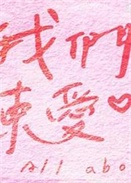 我們
愛♡
All abo